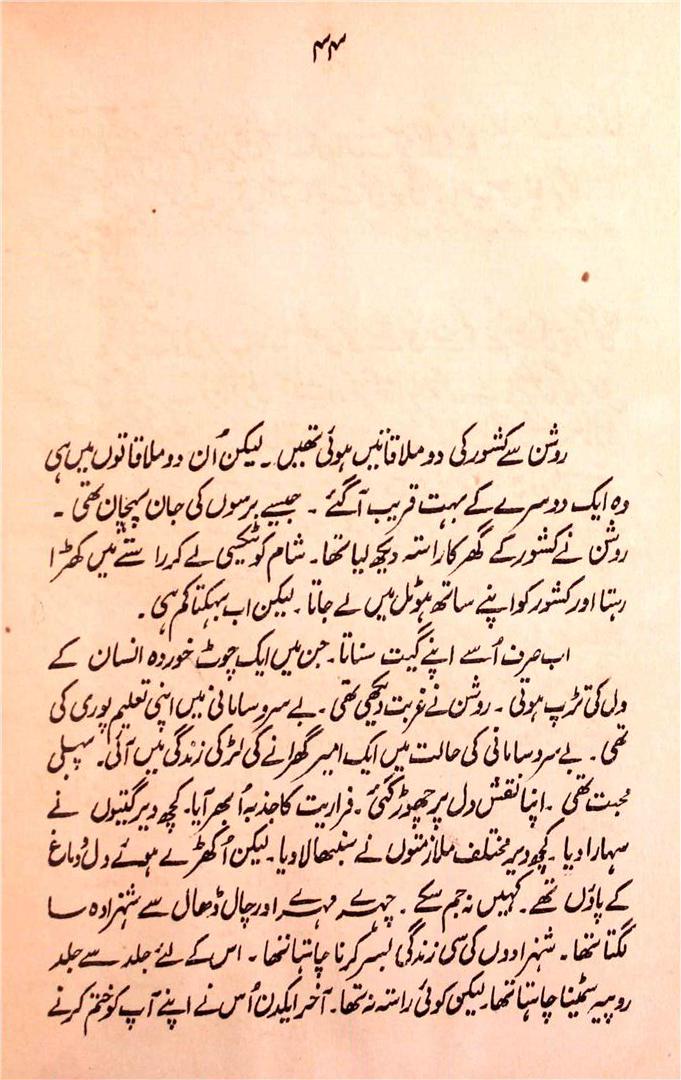 ۴۴
روشن سے کشور کی دو ملاقاتیں ہوئی تھیں ۔ لیکن اُن دو ملاقاتوں میں ہی
وہ ایک دوسرے کے بہت قریب آ گئے ۔ جیسے برسوں کی جان پہچان تھی ۔
روشن نے کشور کے گھر کا راستہ دیکھ لیا تھا۔ شام کو ٹیکسی لے کر راستے میں کھڑا
رہتا اور کشور کو اپنے ساتھ ہوٹل میں لے جاتا ۔ لیکن اب بہکتا کم ہی ۔
اب صرف اُسے اپنے گیت سناتا ۔ جن میں ایک چوٹ خوردہ انسان کے
دل کی تڑپ ہوتی ۔ روشن نے غربت دیکھی تھی ۔ بے سروسامانی میں اپنی تعلیم پوری کی
تھی ۔ بے سروسامانی کی حالت میں ایک امیر گھرانے کی لڑکی زندگی میں آئی ۔ پہلی
محبت تھی ۔ اپنا نقش دل پر چھوڑ گئی ۔ فراریت کا جذبہ اُبھر آیا۔ کچھ دیر گیتوں نے
سہارا دیا ۔ کچھ دیر مختلف ملازمتوں نے سنبھالا دیا ۔ لیکن اُکھڑے ہوئے دل و دماغ
کے پاؤں تھے ۔ کہیں نہ جم سکے ۔ چہرے مہرے اور چال ڈھال سے شہزادہ سا
لگتا تھا ۔ شہزادوں کی سی زندگی بسر کرنا چاہتا تھا ۔ اس کے لئے جلد سے جلد
روپیہ سمیٹنا چاہتا تھا۔ لیکن کوئی راستہ نہ تھا ۔ آخر ایکدن اُس نے اپنے آپ کو ختم کرنے